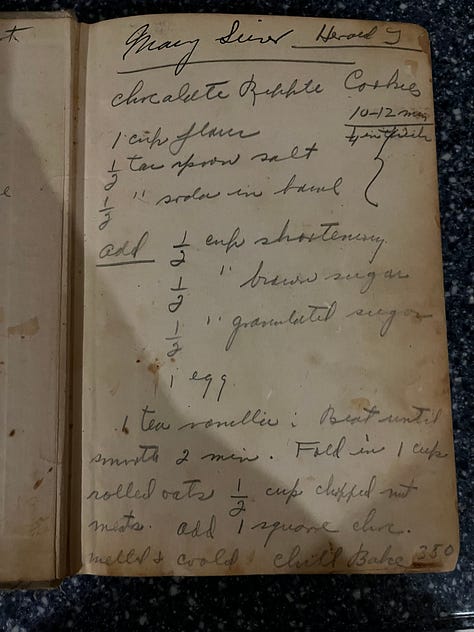 Mary Herald
chocalate Ripple Cookies
10-12 min
1 cup flour
1/2 tea spoon salt
1/2 " soda in bowl
add 1/2 cup shortening
1/2 " brown sugar
1/2 " granulated sugar
1 egg
1 tea vanilla : Beat until
smooth 2 min. Fold in 1 cup
rolled oats 1/2 cup chopped nut
meats. add 1 square choc.
melted & cooled chill Bake 350